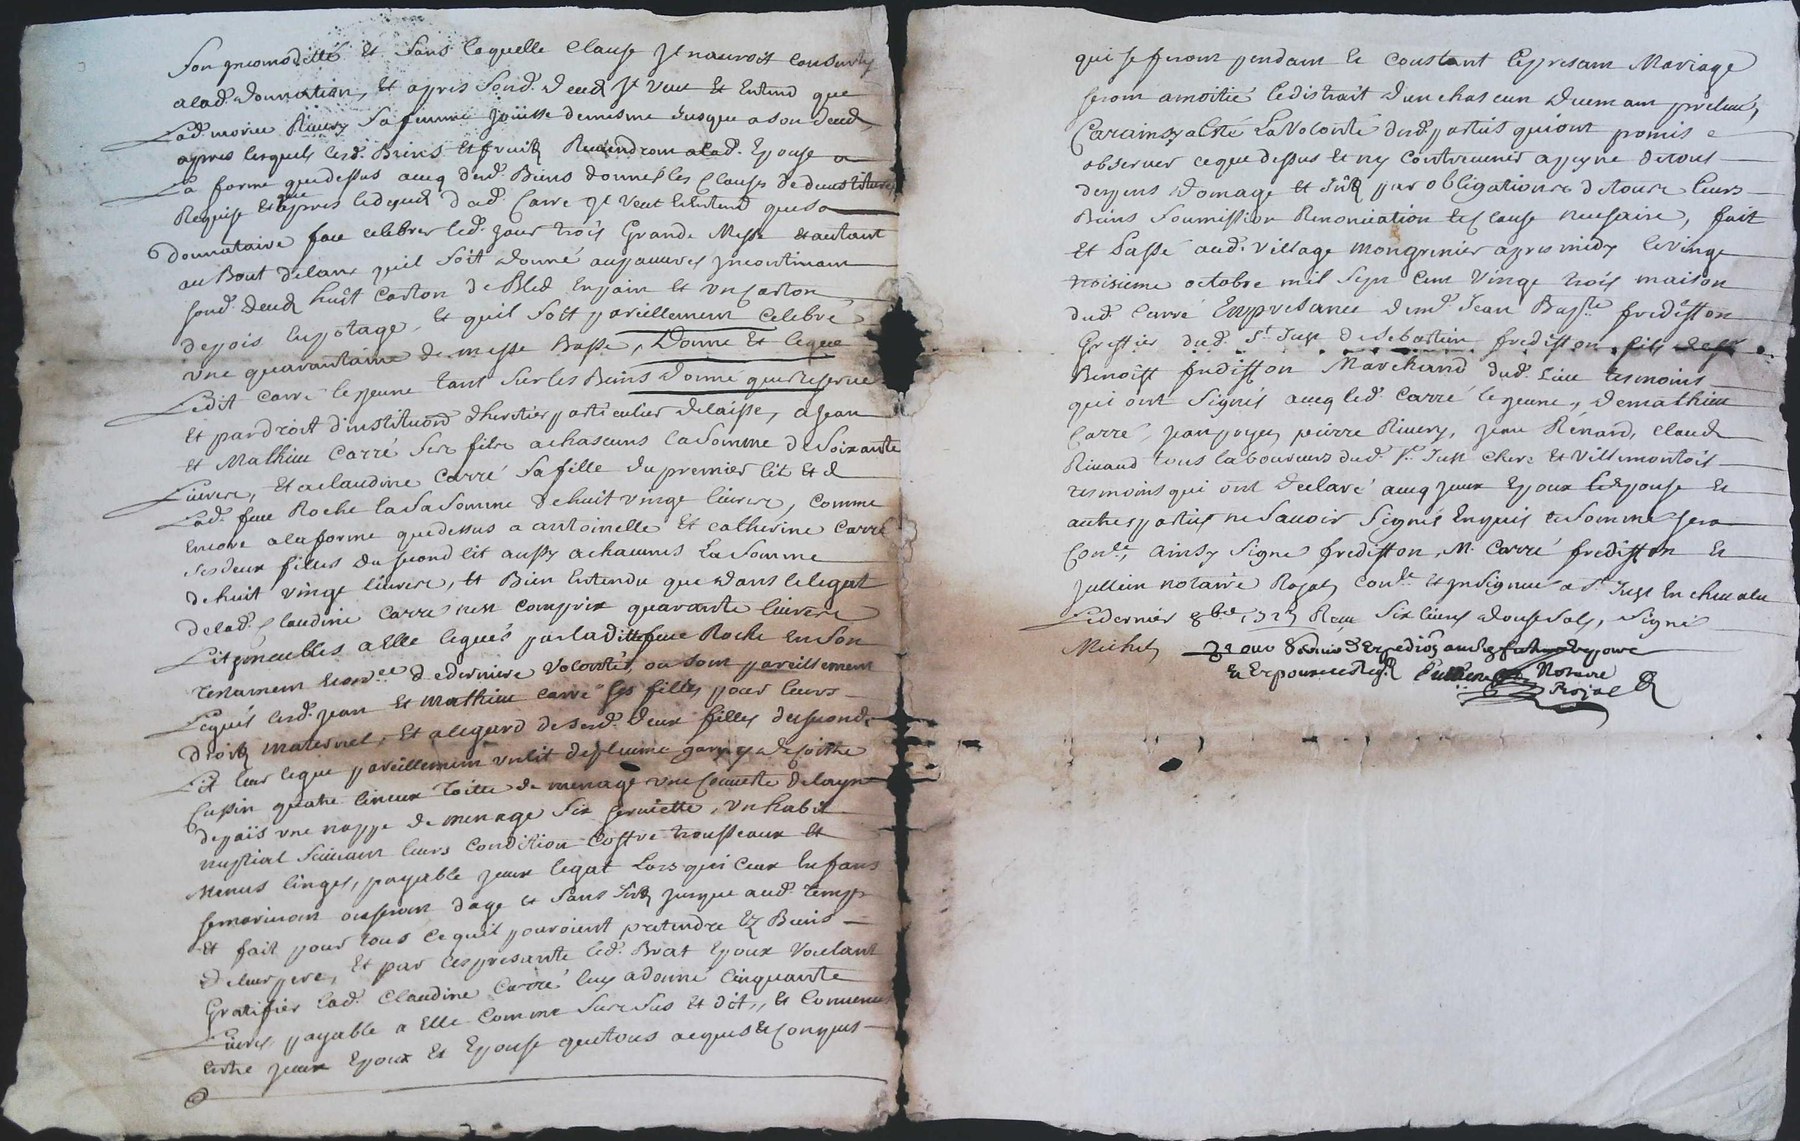 Son incomoditté et sans laquelle clause Jl nauroit consenty
a lad. donnation, et apres sond. deced Jl veut et entend que
Lad. morice Rivery sa femme joüisse de mesme jusque a son deced,
apres lesquels lesd. Biens et fruits Reviendront a lad. Epouse a
La forme que dessus avec desd. Biens donnés les Clauses de
Requise et que apres le deced dud. Carre Jl veut et entend que sa
donnataire face celebrer led. jour trois Grande Messe et autant
au Bout de lans quil soit donné aux pauvres incontinant
sond. deced huit Carton de Bled en pain et un Carton
de pois en potage, et quil soit pareillement celebré
une quarantaine de messe Basse, Donne et legue
Ledit Carré le jeune tant sur les Biens donné que Reserve
et par droit dinstitution dheritier particulier delaisse, a Jean
et Mathieu Carré ses fils a chascuns la somme de soixante
Livres, et a claudine Carré sa fille du premier lit et de
Lad. feue Roche la somme de huit vingt livres, comme
encore a la forme que dessus a antoinette et catherine Carré
ses deux filles du second lit aussy a chacunes La somme
de huit vingt livres, et Bien entendu que dans le legat
de lad. Claudine Carré nest compris quarante livres
et meubles a elle legués par laditte feue Roche en son
testament et de derniere volontés ou sont pareillement
Legués lesd. Jean et Mathieu Carré ses filles pour leurs
droits maternel, et a legard de sesd. deux filles du second
Lit leur legue pareillement un lit de plume garny de
Cussin quatre linceux toille de menage une Couverte de layne
de païs une nappe de menage six serviette, un habit
nuptial suivant leurs condition Coffre trousseaux et
Menus linges, payable yceux legat Lors que Ceux enfans
se mariront ou seront dage et sans jusque aud. temps
et fait pour tous ce quil pouroient pretendre ez Biens
de leur pere, et par ces presante led. Brat Epoux voulant
Gratifier lad. Claudine Carré luy a donné Cinquante
Livres payable a elle comme sus et dit, et Convenus
entre yceux Epoux et Epouse que tous acquis et Conquis
qui se feront pendant le Constant le presant Mariage
seront amoitié le distrait dun chascun duemant prelevé,
Car ainsy a esté La volonté desd. parties qui ont promis
observer ce que dessus et ny contrevenir a peyne de tous
depens domage et par obligations de tous leurs
Biens soumission Renonciation et clause necessaire, fait
et Passé aud. village Mongrenier apres midy le vingt
troisieme octobre mil sept cent vingt trois maison
dud. Carré En presance de mr. Jean Bapte. fredisson
Greffier dud. St. Just de Sebastien fredisson fils
Benoist fredisson Marchand dud. Lieu tesmoins
qui ont signés avec led. Carré le jeune, de mathieu
Carré, Jean poyet, pierre Rivery, Jean Renard, claude
Rivaud tous laboureurs dud. St. Just Chere et Villemontois
tesmoins qui ont declaré avec yceux Epoux et Epouse et
autres parties ne savoir signés enquis et sommé sera
Conle. ainsy signé fredisson, M. Carré fredisson et
Jullien notaire Royal Conle. et insignué a St. Just en chevalu
Le dernier 8bre 1723 Reçu six livres douse sols, signé
Michel
Jullien Notaire
Royal